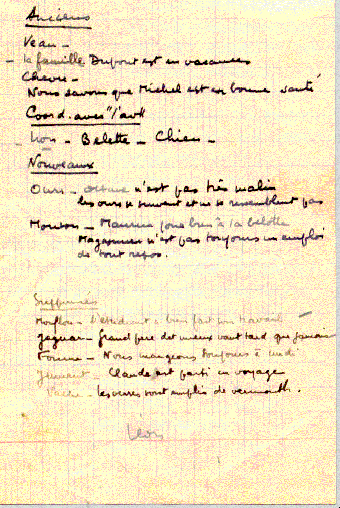 Anciens
Veau -
- la famille Dupont est en vacances
Chèvre -
Nous savons que Michel est en bonne santé
Coord. avec
Lion - Belette - Chien -
Nouveaux
Ours - n'est pas très malin
les ours se suivent et ne se ressemblent pas
Mouton - Maurice joue bien à la belote
Magasinier n'est pas toujours un emploi
de tout repos.
Supprimés
Mouflon - a bien fait son travail -
Jaguar - Grand père dit mieux vaut tard que jamais
- Nous mangeons toujours à midi
Jument - Claude est parti en voyage
Vache - les verres sont emplis de vermouth.